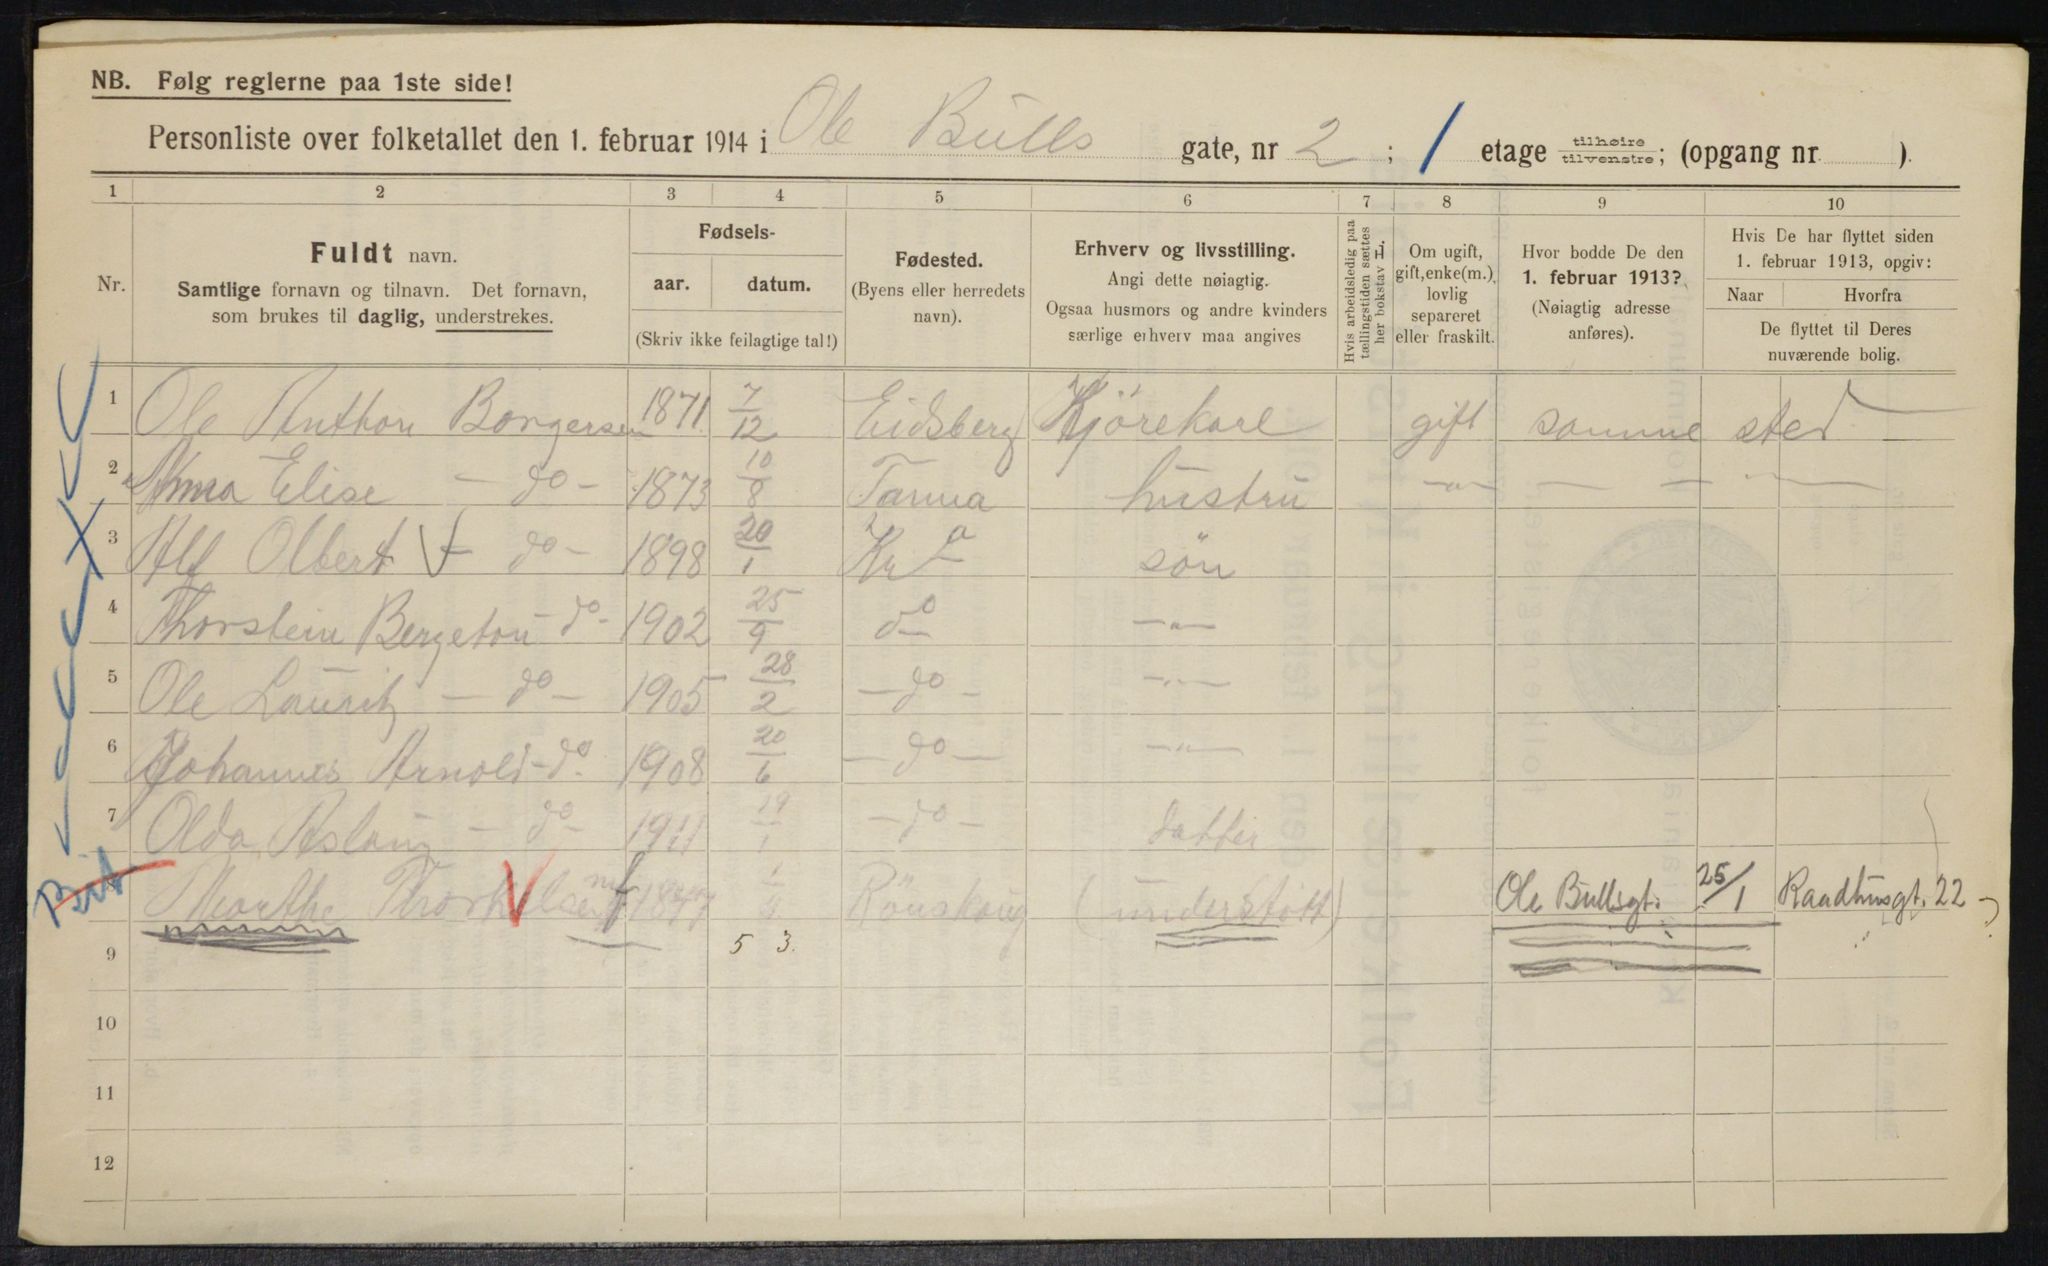 NB. Følg reglerne paa 1ste side!
Personliste over folketallet den 1. februar 1914 i Ole Bulls gate, nr 2 ; 1 etage tilhøire tilvenstre; (opgang nr. ).
1 2 3 4 5 6 7 8 9 10
Nr.
Fuldt navn.
Samtlige fornavn og tilnavn. Det fornavn,
som brukes til daglig, understrekes.
Fødsels-
aar. datum.
(Skriv ikke feilagtige tal!)
Fødested.
(Byens eller herredets
navn).
Erhverv og livsstilling.
Angi dette nøiagtig.
Ogsaa husmors og andre kvinders
særlige erhverv maa angives
Hvis arbeidsledig paa
tællingstiden sættes
her bokstav L.
Om ugift,
gift, enke(m.),
lovlig
separeret
eller fraskilt.
Hvor bodde De den
1. februar 1913?
(Nøiagtig adresse
anføres).
Hvis De har flyttet siden
1. februar 1913, opgiv:
Naar Hvorfra
De flyttet til Deres
nuværende bolig.
1 Ole Anthon Borgersen 1871 7/12 Eidsberg Kjörekarl gift samme sted
2 Elise - do - 1873 10/8 hustru -"-
3 Alf Olbert - do - 1898 20/1 Kra sön
4 Thorstein Bergeton - do - 1902 25/9 do -"-
5 Ole Lauritz - do - 1905 28/2 - do - -"-
6 Johannes Arnold - do 1908 20/6 - do - -"-
7 Olda Aslaug - do - 1911 19/1 - do - datter
8 Marthe 1847 (understött) Ole Bullsgt. 25/1 Raadhusgt. 22
9 5 3.
10
11
12